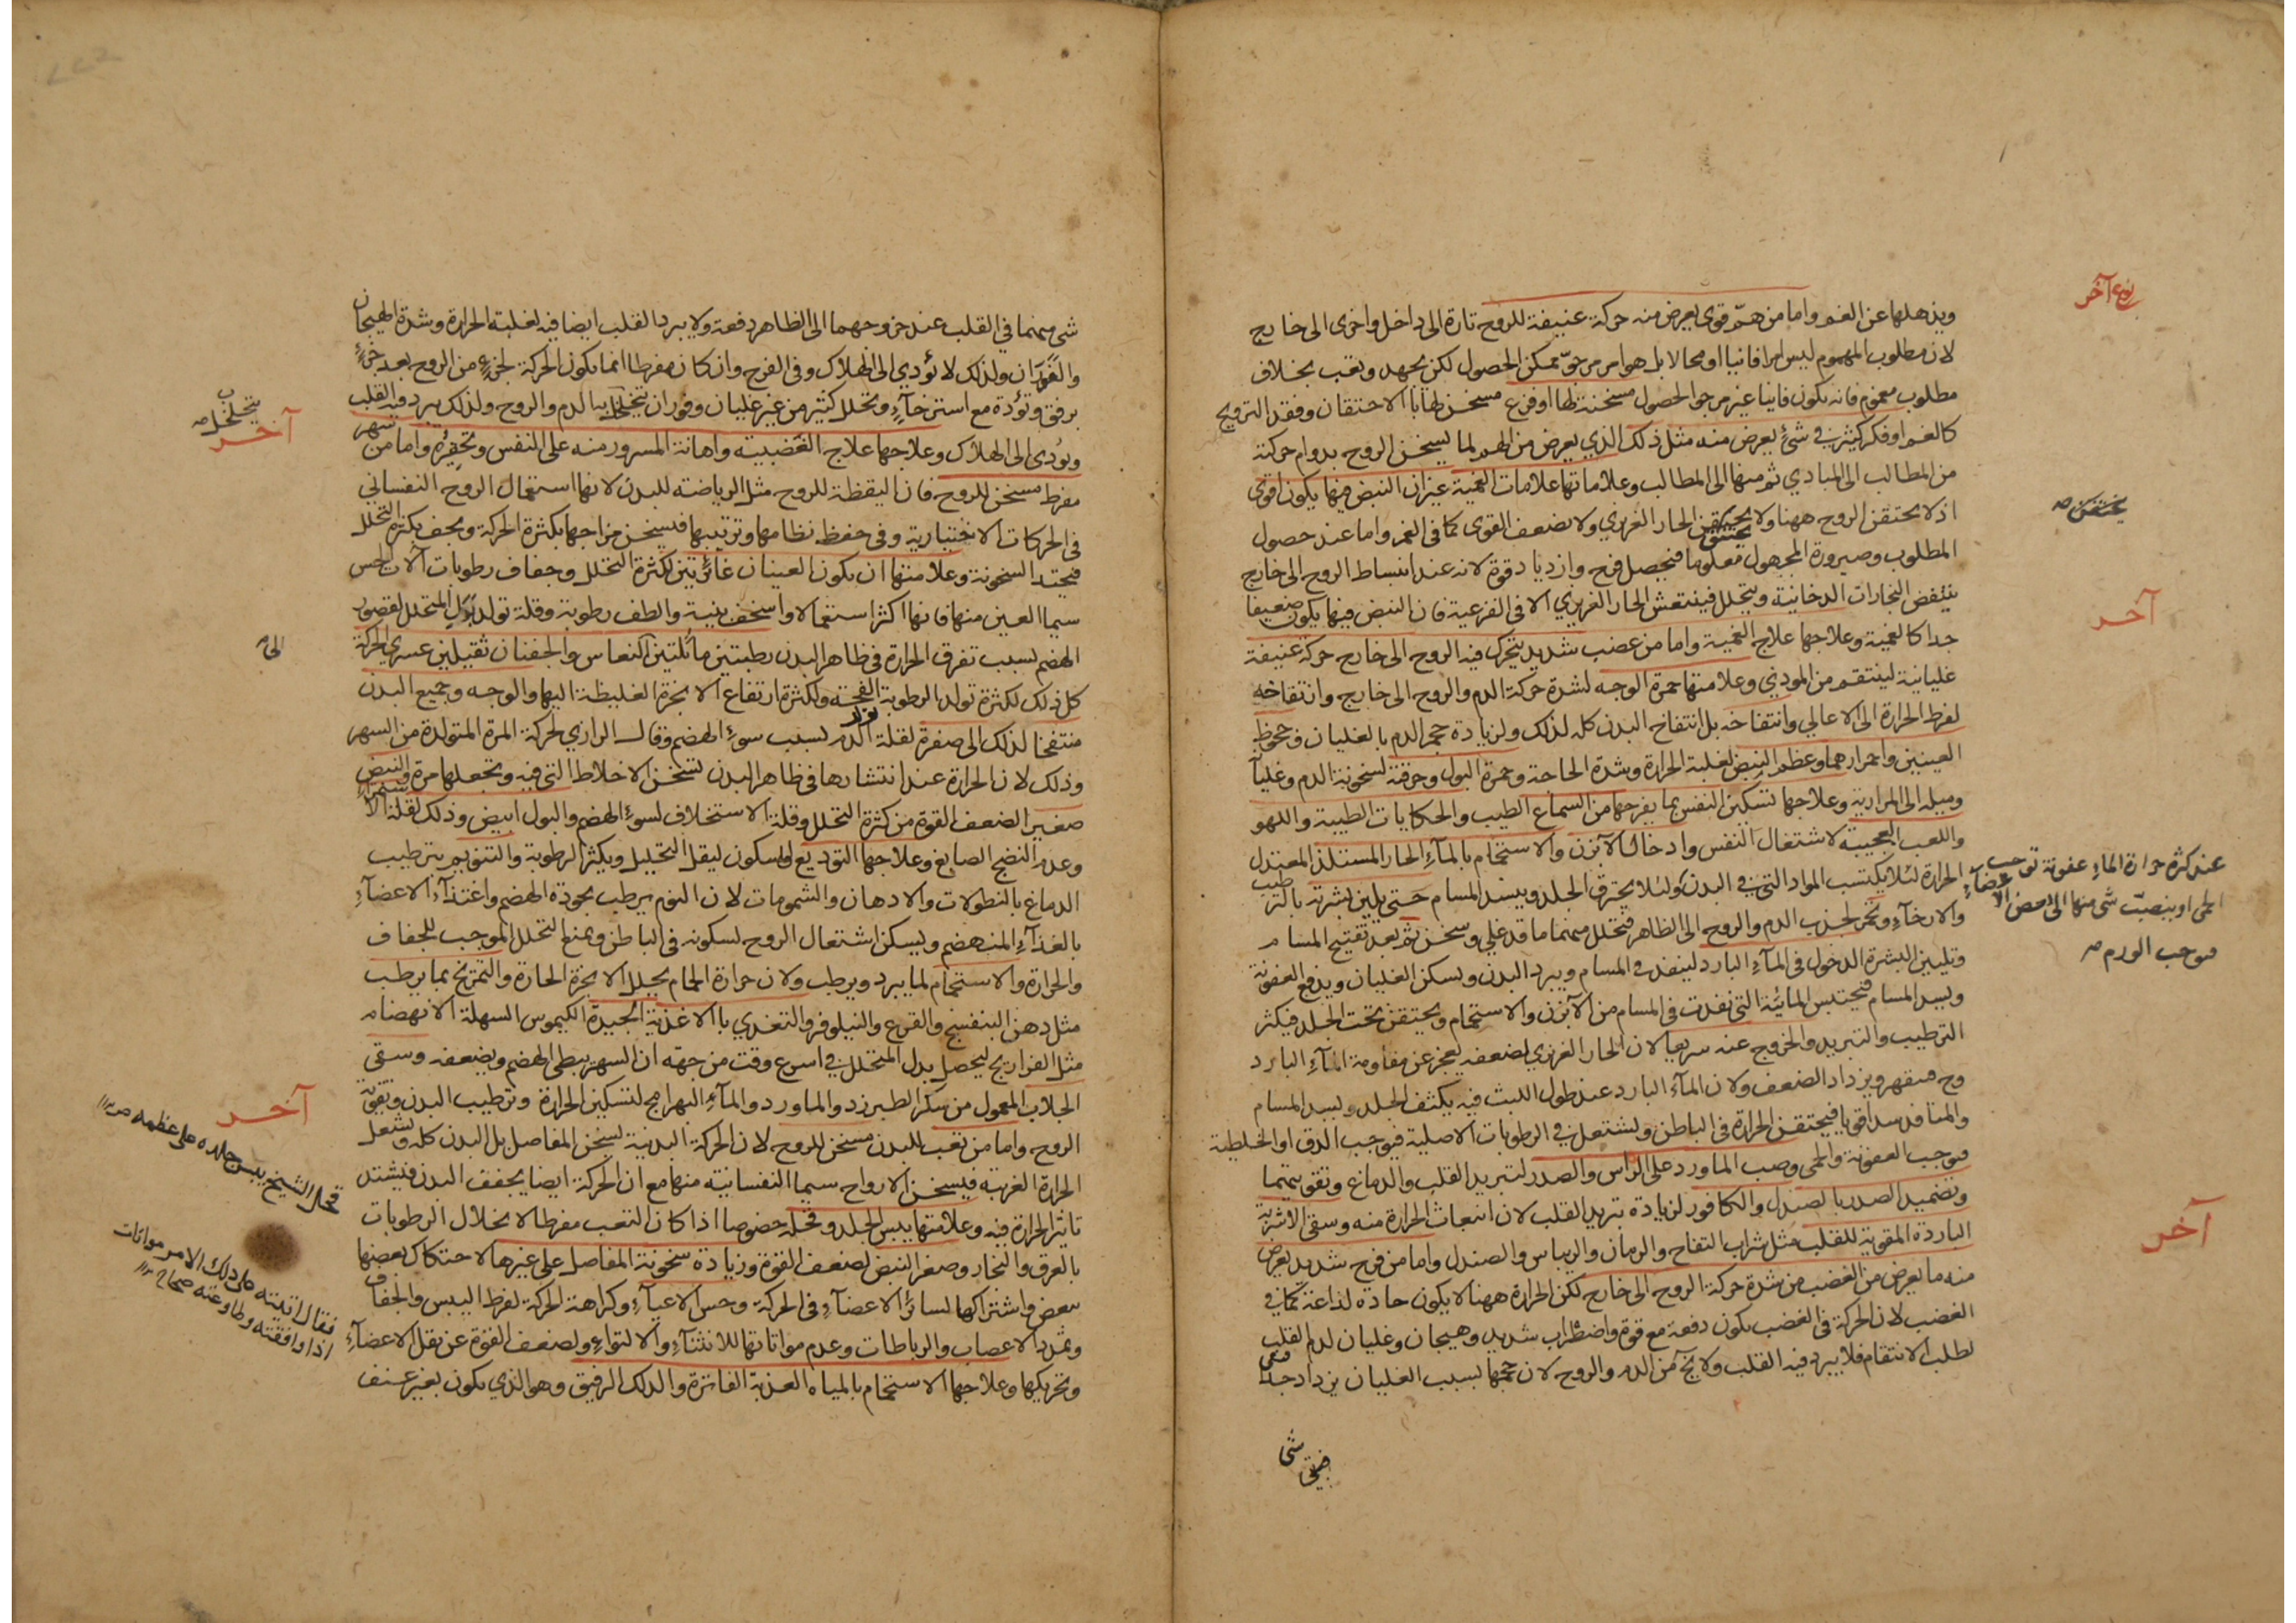 نوع آخر
ويذهلها عن الغم واما من هم قوى يعرض منه حركة عنيفة للروح تارة الى داخل واخرى الى خارج
لان مطلوب المهموم ليس امرا فانيا او محالا بل هو امر مرجو ممكن الحصول لكن بجهد وتعب بخلاف
مطلوب مغموم فانه يكون فانيا غير مرجو الحصول مسخنة لها او فزع مسخن لها بالاحتقان وفقد الترويح
كالغم او فكر كثير في شئ يعرض منه مثل ذلك الذي يعرض من الهم لما يسخن الروح بدوام حركته
من المطالب الى المبادي ثم منها الى المطالب وعلاماتها علامات الغمية غير ان النبض فيها يكون اقوى
اذ لا يحتقن الروح ههنا ولا يختنق الحار الغريزي ولا يضعف القوى كما في الغم واما عند حصول
يحتقن صح
المطلوب وصيرورة المجهول معلوما فيحصل فرح وازدياد قوة لانه عند انبساط الروح الى خارج
ينتفض البخارات الدخانية ويتحلل فينتعش الحار الغريزي الا في الفزعية فان النبض فيها يكون ضعيفا
آخر
جدا كالغمية وعلاجها علاج الغمية واما من غضب شديد يتحرك فيه الروح الى خارج حركة عنيفة
غليانية لينتقم من المؤذي وعلامتها حمرة الوجه لشدة حركة الدم والروح الى خارج وانتفاخه
لفرط الحرارة الى الاعالي وانتفاخه بل انتفاخ البدن كله لذلك ولزيادة حجم الدم بالغليان وجحوظ
العينين واحمرارهما وعظم النبض لغلبة الحرارة وشدة الحاجة وحمرة البول وحرقته لسخونة الدم وغليانه
وميله الى المرارية وعلاجها تسكين النفس بما يفرحها من السماع الطيب والحكايات الطيبة واللهو
واللعب العجيبة لاشتغال النفس وادخال الآبزن والاستحمام بالمآء الحار المستلذ المعتدل
الحرارة لئلا يكتسب المواد التي في البدن ولئلا يحترق الجلد وينسد المسام حتى يلين بشرته بالترطيب
عند كثرة حرارة الماء عفونة توجب
الحمى او ينصبّ شئ منها الى بعض الاعضآء
فيوجب الورم صح
والارخآء وتحمر لجذب الدم والروح الى الظاهر فيتحلل منهما ما قد غلي وسخن ثم بعد تفتيح المسام
وتليين البشرة الدخول في المآء البارد لينفذ في المسام ويبرد البدن ويسكن الغليان ويدفع العفونة
ويسد المسام فيحتبس المائية التي نفذت في المسام من الآبزن والاستحمام ويحتقن تحت الجلد فيكثر
الترطيب والتبريد والخروج عنه سريعا لان الحار الغريزي لضعفه يعجز عن مقاومة المآء البارد
وح منقهر ويزداد الضعف ولان المآء البارد عند طول اللبث فيه يكثف الجلد ويسد المسام
والمنافذ سدا قويا فيحتقن الحرارة في الباطن ويشتعل في الرطوبات الاصلية فيوجب الدق او الخلطية
فيوجب العفونة والحمى وصب الماورد على الراس والصدر لتبريد القلب والدماغ وتقويتهما
وتضميد الصدر بالصندل والكافور لزيادة تبريد القلب لان انبعاث الحرارة منه وسقى الاشربة
الباردة المقوية للقلب مثل شراب التفاح والرمان والريباس والصندل واما من فرح شديد يعرض
آخر
منه ما يعرض من الغضب من شدة حركة الروح الى خارج لكن الحرارة ههنا لا يكون حادة لذاعة كما في
الغضب لان الحركة في الغضب يكون دفعة مع قوة واضطراب شديد وهيجان وغليان لدم القلب
لطلب الانتقام فلا يبرد فيه القلب ولا يخ من الدم والروح لان حجمها بسبب الغليان يزداد جدا
شئ
شئ منهما في القلب عند خروجهما الى الظاهر دفعة ولا يبرد القلب ايضا فيه لغلبة الحرارة وشدة الهيجان
والفوران ولذلك لا يؤدي الى الهلاك وفي الفرح وان كان مفرطا انما يكون الحركة لجزء من الروح بعد جزء
برفق وتؤدة مع استرخآء وتحلل كثير من غير غليان وفوران يتخلخل بها الدم والروح ولذلك يبرد فيه القلب
يتخلخل صح
آخر
ويؤدى الى الهلاك وعلاجها علاج الغضبية واهانة المسرور منه على النفس وتحقيره واما من سهر
مفرط مسخن للروح فان اليقظة للروح مثل الرياضة للبدن لانها استعمال الروح النفسانى
في الحركات الاختيارية وفي حفظ نظامها وترتيبها فيسخن مزاجها بكثرة الحركة ويجف بكثرة التحلل
فيحتد السخونة وعلامتها ان يكون العينان غائرتين لكثرة التحلل وجفاف رطوبات الآت الحس
سيما العين منها فانها اكثر استعمالا واسخف بنية والطف رطوبة وقلة تولد بدل المتحلل لقصور
الهضم لسبب تفرق الحرارة في ظاهر البدن رطبتين مائلتين الى النعاس والجفنان ثقيلين عسرى الحركة
الى صح
كل ذلك لكثرة تولد الرطوبة الفجة ولكثرة ارتفاع الابخرة الغليظة اليها والوجه وجميع البدن
منتفخا لذلك الى صفرة لقلة تولد الدم بسبب سوء الهضم وقال الرازي لحركة المرة المتولدة من السهر
وذلك لان الحرارة عند انتشارها في ظاهر البدن تسخن الاخلاط التي فيه وتجعلها مرة والنبض
صغير الضعف القوة من كثرة التحلل وقلة الاستخلاف لسوء الهضم والبول ابيض وذلك لقلة الاستمرآء
وعدم النضج الصابغ وعلاجها التوديع والسكون ليقل التحليل ويكثر الرطوبة والتنويم بترطيب
الدماغ بالنطولات والادهان والشمومات لان النوم يرطب بجودة الهضم واغتذآء الاعضآء
بالغذآء المنهضم ويسكن اشتعال الروح لسكونه في الباطن ويمنع التحلل الموجب للجفاف
والحرارة والاستحمام لما يبرد ويرطب ولان حرارة الحمام يحلل الابخرة الحارة والتمريخ بما يرطب
مثل دهن البنفسج والقرع والنيلوفر والتغدي بالاغذية الجيدة الكيموس السهلة الانهضام
مثل الفراريج ليحصل بدل المتحلل في اسرع وقت من جهة ان السهر يبطى الهضم ويضعفه وسقى
الجلاب المعمول من سكر الطبرزد والماورد والمآء البهرامج لتسكين الحرارة وترطيب البدن وتقوية
آخر
الروح واما من تعب للبدن مسخن للروح لان الحركة البدنية تسخن المفاصل بل البدن كله ويشتعل
الحرارة الغريبة فيسخن الارواح سيما النفسانية منها مع ان الحركة ايضا يجفف البدن فيشتد
قحل الشيخ يبس جلده على عظمه ص
تاثير الحرارة فيه وعلامتها يبس الجلد وقحله خصوصا اذا كان التعب مفرطا لانحلال الرطوبات
بالعرق والبخار وصغر النبض لضعف القوة وزيادة سخونة المفاصل على غيرها لاحتكاك بعضها
ببعض واشتراكها لسائر الاعضآء في الحركة وحس الاعيآء وكراهة الحركة لفرط اليبس والجفاف
فقال اتيته على ذلك الامر مواتات
اذا وافقته وطاوعته صحاح
وتمدد الاعصاب والرباطات وعدم مواتاتها للانثنآء والالتواء ولضعف القوة عن نقل الاعضآء
وتحريكها وعلاجها الاستحمام بالمياه العذبة الفاترة والدلك الرفيق وهو الذي يكون بغير عنف